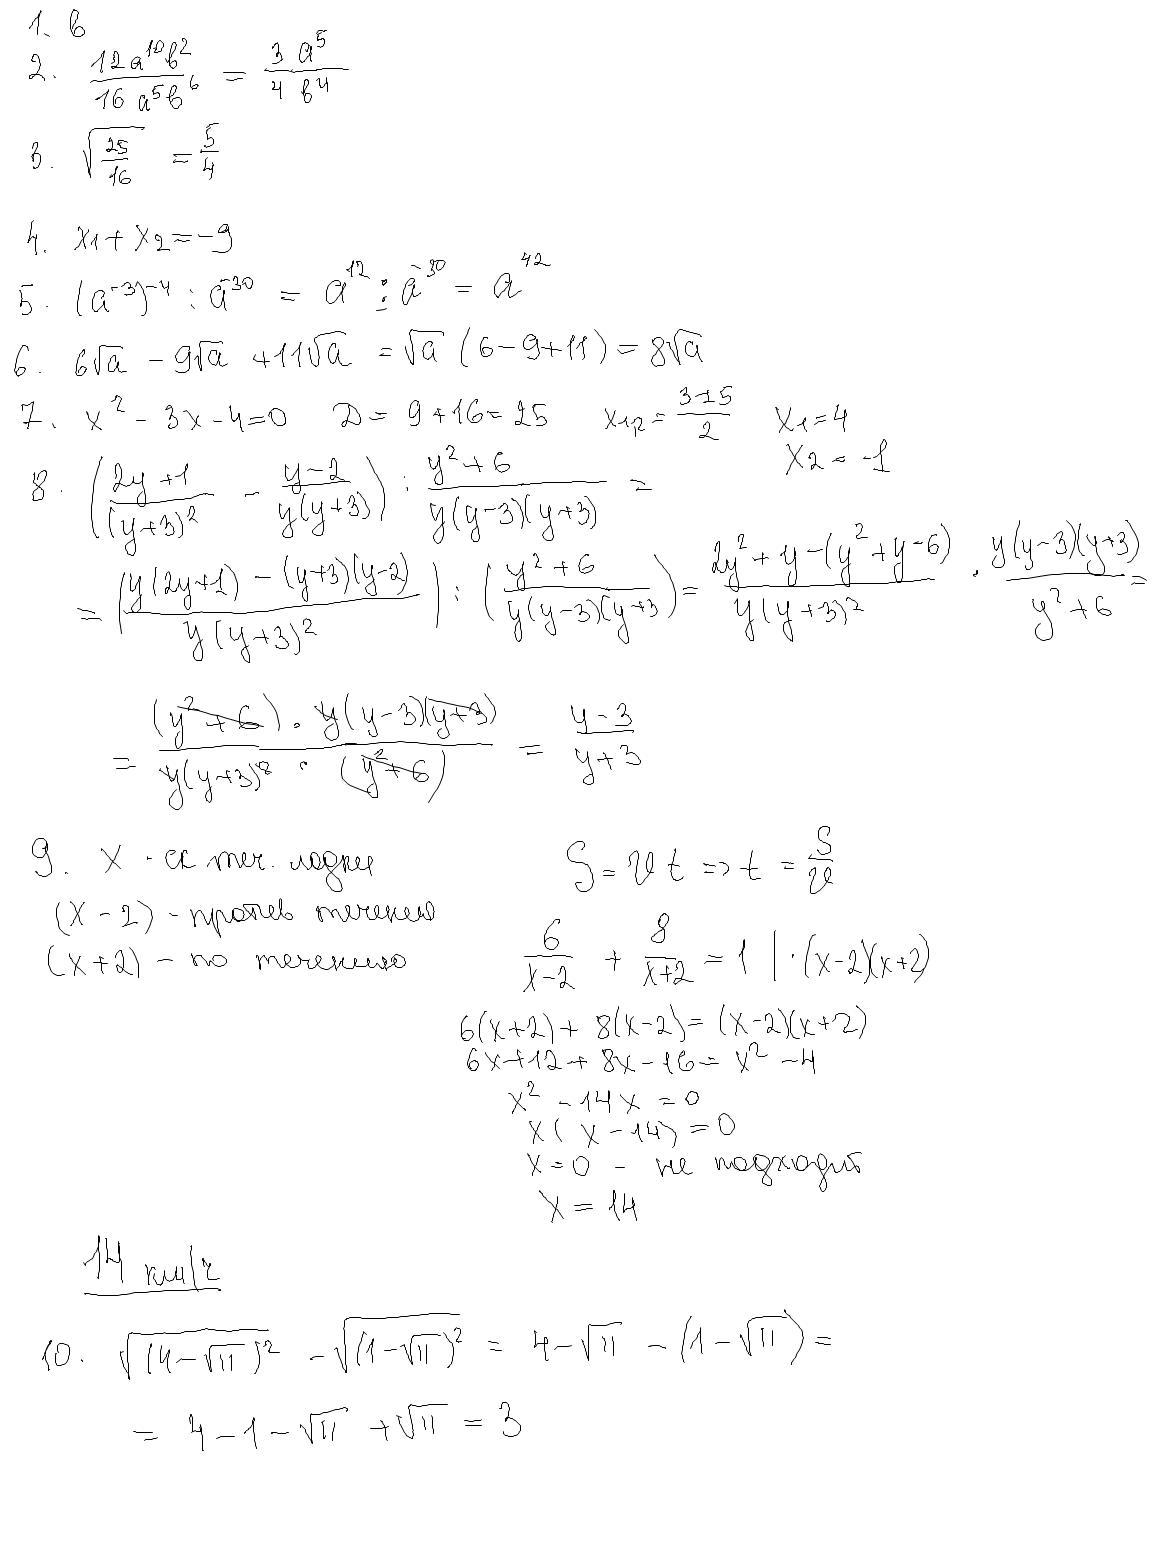 1. в
2. 12a^10 в^2 / 16 a^5 в^6 = 3 a^5 / 4 в^4
3. √(25/16) = 5/4
4. x1 + x2 = -9
5. (a^-3)^-4 : a^-30 = a^12 : a^-30 = a^42
6. 6√a - 9√a + 11√a = √a (6-9+11) = 8√a
7. x^2 - 3x - 4 = 0 D = 9 + 16 = 25 x1,2 = (3±5)/2 x1 = 4
x2 = -1
8. ((2y+1)/(y+3)^2 - (y-2)/(y(y+3))) : (y^2+6)/(y(y-3)(y+3)) =
= ((y(2y+1) - (y+3)(y-2))/(y(y+3)^2)) : ((y^2+6)/(y(y-3)(y+3)) = (2y^2 + y - (y^2+y-6))/(y(y+3)^2) · (y(y-3)(y+3))/(y^2+6) =
= ((y^2+6) · y(y-3)(y+3))/(y(y+3)^2 · (y^2+6)) = (y-3)/(y+3)
9. x - ск теч. лодки S = v t => t = S/v
(x-2) - против течения
(x+2) - по течению
6/(x-2) + 8/(x+2) = 1 | · (x-2)(x+2)
6(x+2) + 8(x-2) = (x-2)(x+2)
6x+12+8x-16 = x^2 - 4
x^2 - 14x = 0
x(x-14) = 0
x = 0 - не подходит
x = 14
14 км/ч
10. √((4-√11)^2) - √((1-√11)^2) = 4-√11 - (1-√11) =
= 4-1-√11 + √11 = 3